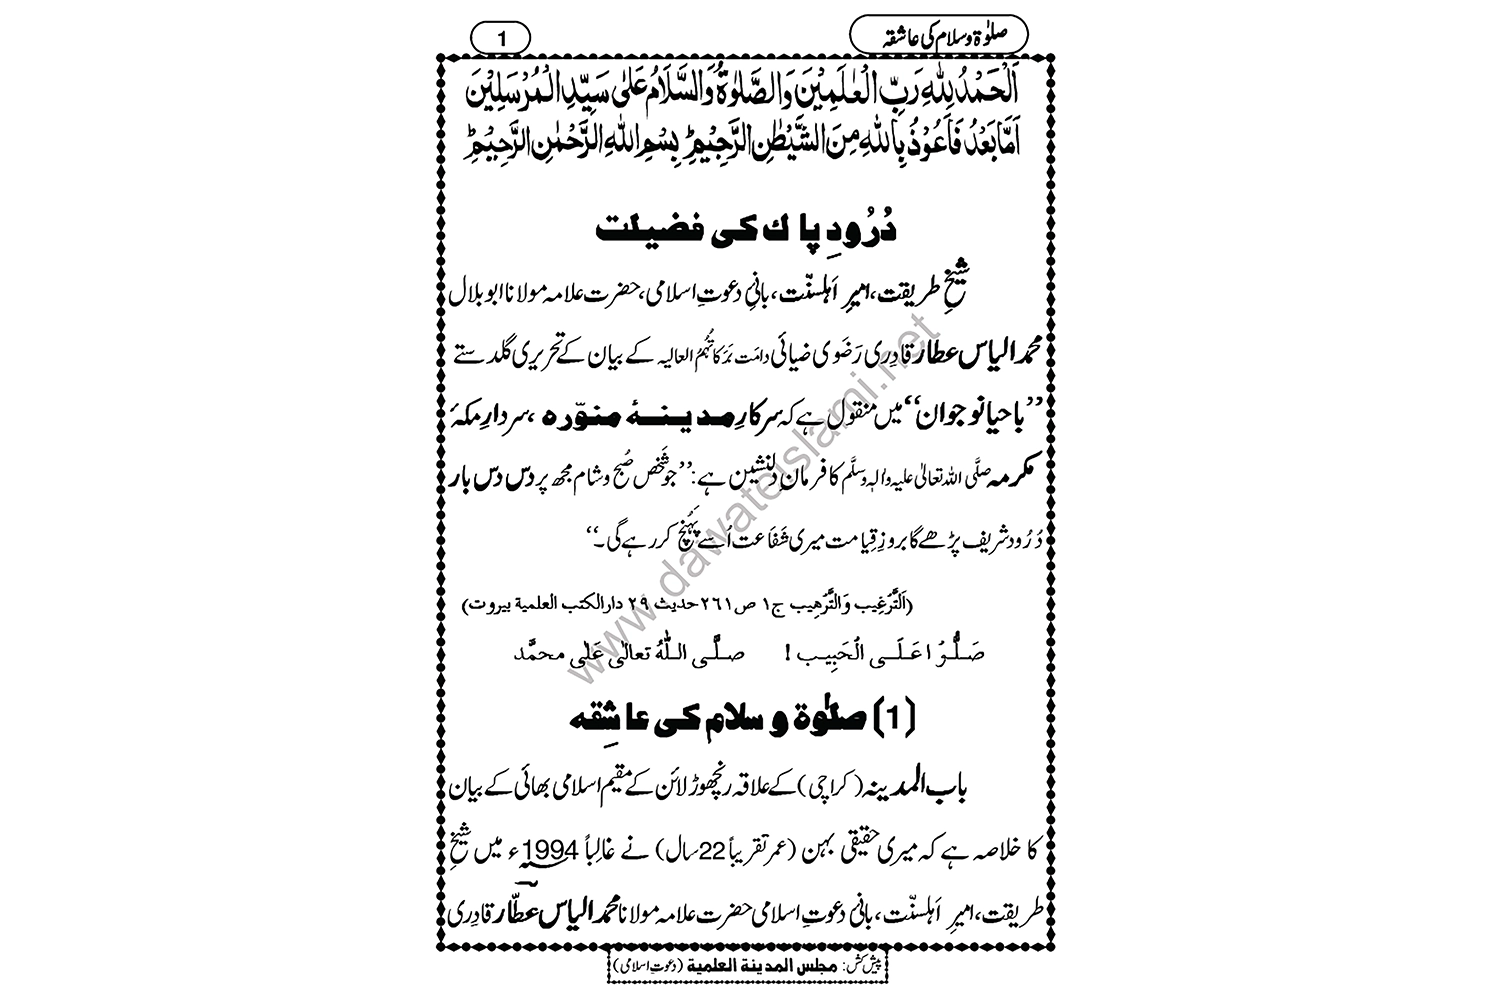 صلوٰۃ وسلام کی عاشقہ
1
اَلْحَمْدُ لِلّٰہِ رَبِّ الْعٰلَمِیْنَ وَالصَّلٰوۃُ وَالسَّلَامُ عَلٰی سَیِّدِ الْمُرْسَلِیْنَ
اَمَّا بَعْدُ فَاَعُوْذُ بِاللّٰہِ مِنَ الشَّیْطٰنِ الرَّجِیْمِ ؕ بِسْمِ اللّٰہِ الرَّحْمٰنِ الرَّحِیْمِ ؕ
دُرُودِ پاک کی فضیلت
شیخِ طریقت، امیرِ اَہلسنّت، بانیِ دعوتِ اسلامی، حضرت علامہ مولانا ابو بلال
محمد الیاس عطار قادِری رَضَوی ضیائی دامت بَرَکاتُہُمُ العالیہ کے بیان کے تحریری گلدستے
’’باحیا نوجوان‘‘ میں منقول ہے کہ سرکارِ مدینۂ منوّرہ، سردارِ مکۂ
مکرمہ صلَّی اللہ تعالیٰ علیہ واٰلہٖ وسلَّم کا فرمانِ دلنشین ہے: ’’جو شخص صُبح و شام مجھ پر دس دس بار
دُرُود شریف پڑھے گا بروزِ قِیامت میری شَفَاعت اُسے پَہُنچ کر رہے گی۔‘‘
(اَلتَّرْغِیب وَالتَّرْھِیب ج۱ ص ۲۶۱ حدیث ۲۹ دارالکتب العلمیة بیروت)
صَلُّوْا عَلَی الْحَبِیب ! صلَّی اللّٰہُ تعالٰی عَلٰی محمَّد
(1) صلوٰۃ و سلام کی عاشِقہ
باب المدینہ (کراچی) کے علاقہ رنچھوڑ لائن کے مقیم اسلامی بھائی کے بیان
کا خلاصہ ہے کہ میری حقیقی بہن (عمر تقریباً 22 سال) نے غالِباً 1994ء میں شیخِ
طریقت، امیرِ اَہلسنّت، بانیِ دعوتِ اسلامی حضرت علامہ مولانا محمد الیاس عطّار قادِری
پیش کش: مجلس المدینة العلمیة (دعوتِ اسلامی)
www.dawateislami.net